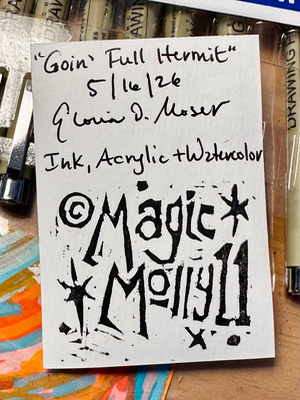 "Goin' Full Hermit"
5/16/26
Gloria D. Moser
Ink, Acrylic + Watercolor
© Magic
Molly 11
DRAWING
DRAWING